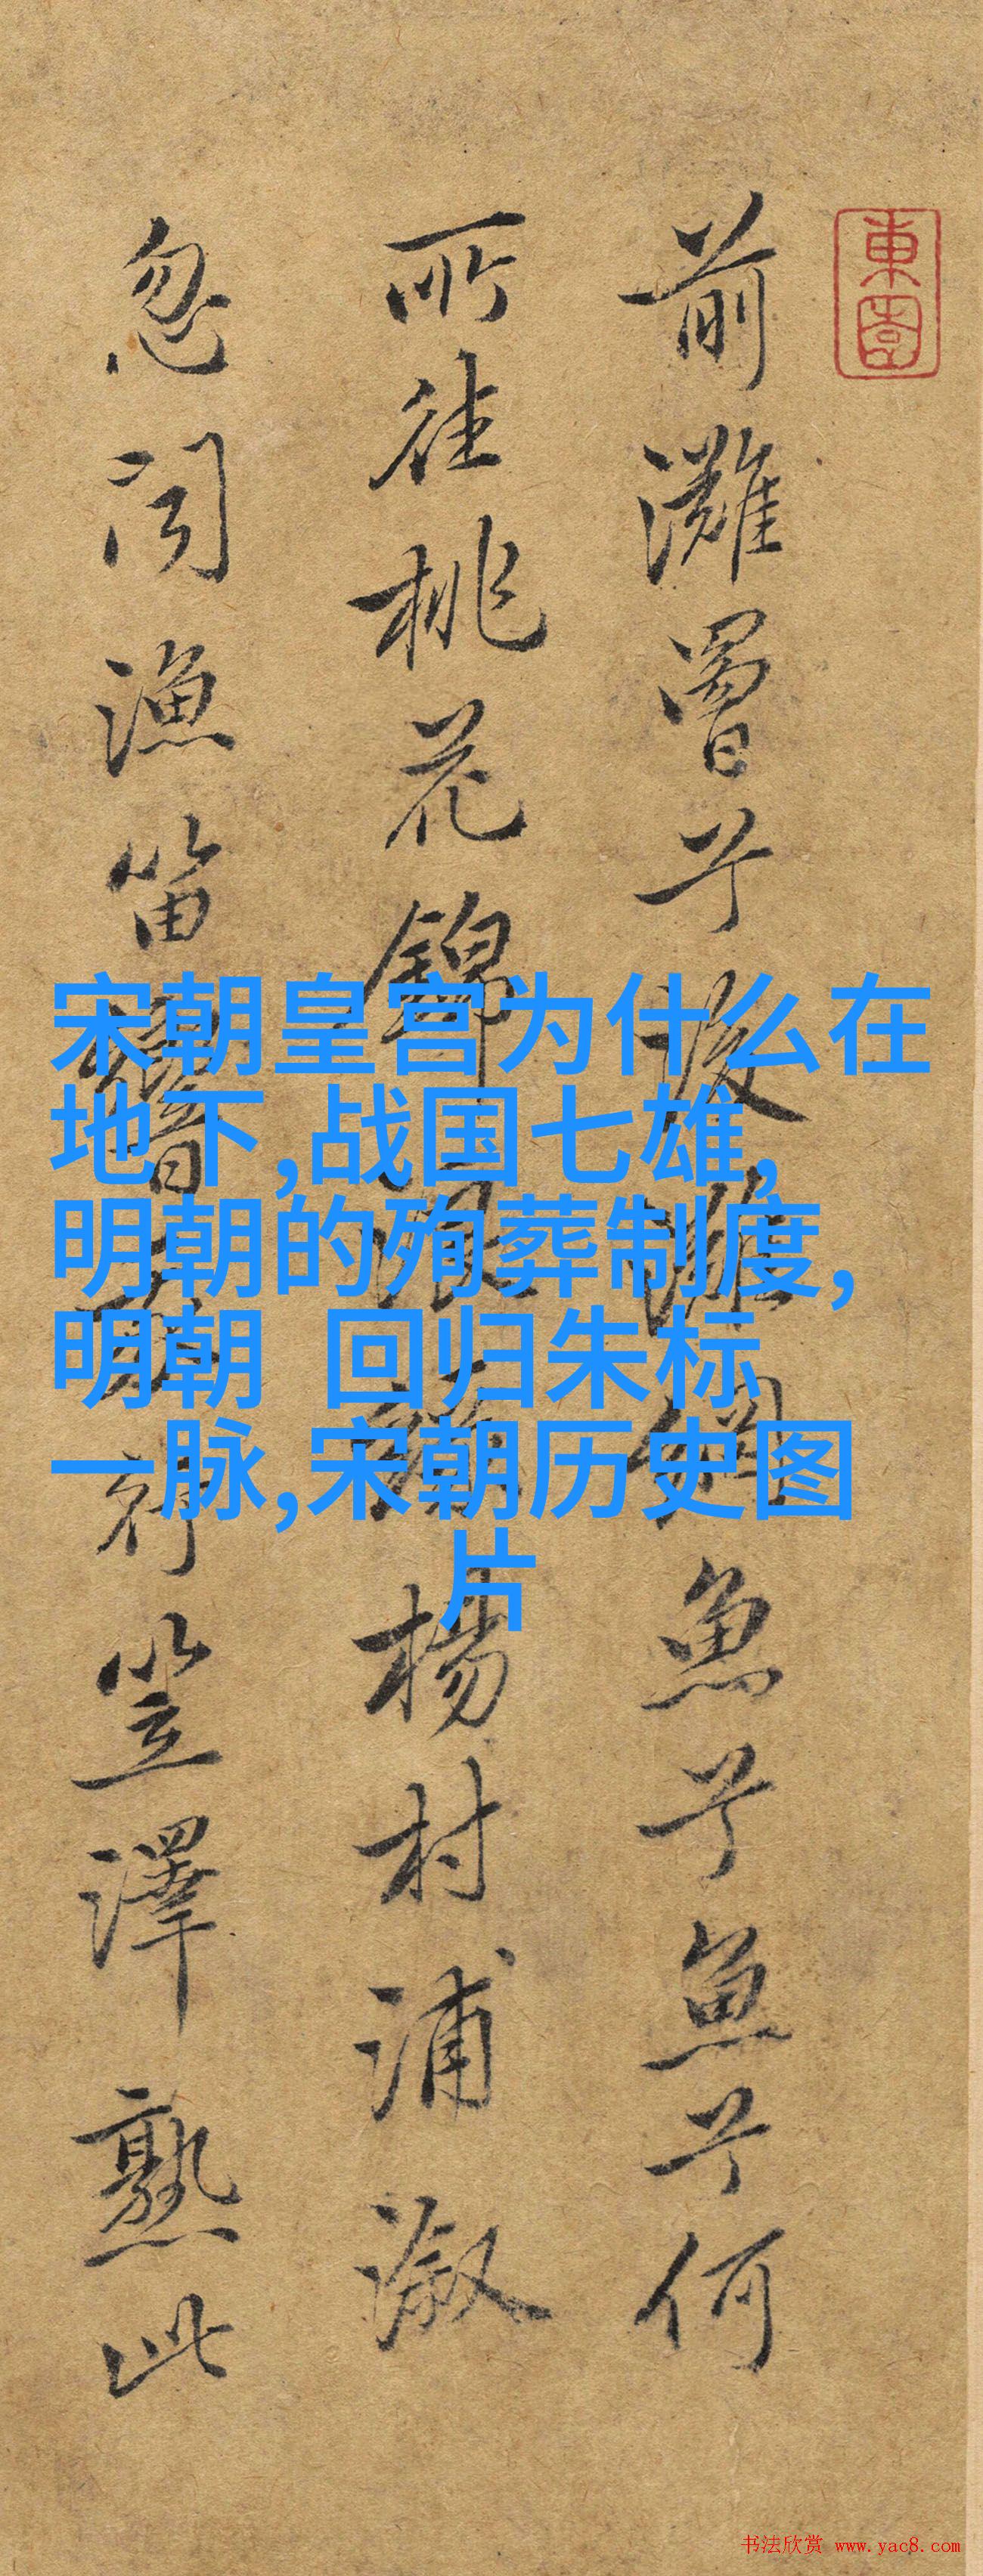 東園
前灘罾下後灘網魚下魚下何
所往桃花錦浪綠楊村浦溆
忽聞漁笛響 笠澤熟此
宋朝皇宫为什么在
地下,战国七雄,
明朝的殉葬制度,
明朝 回归朱标
一脉,宋朝历史图
片
书法欣赏 www.yac8.com